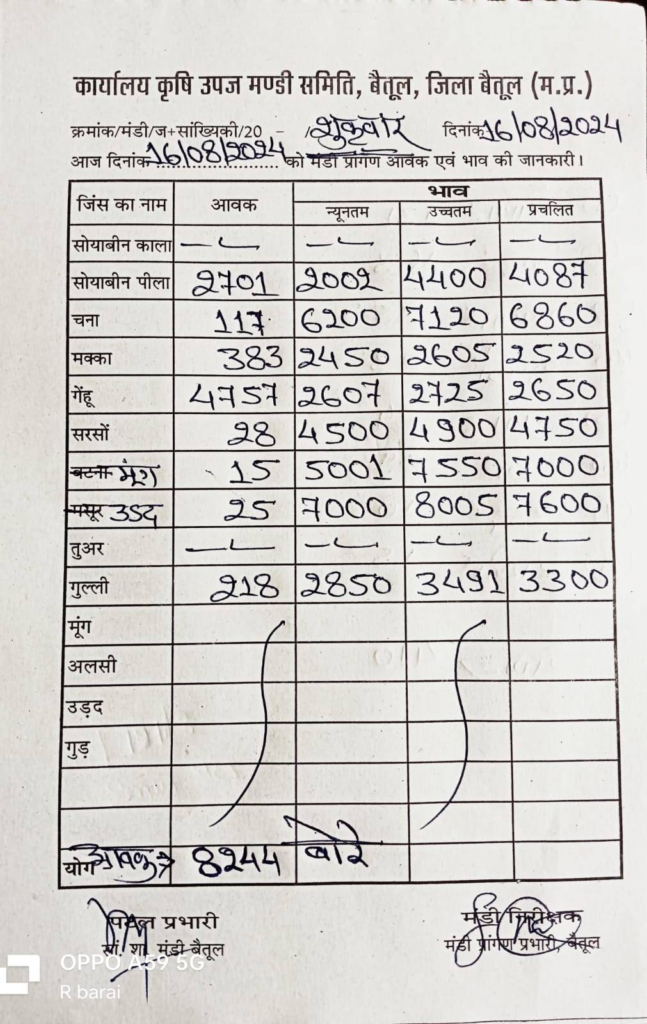 कार्यालय कृषि उपज मण्डी समिति, बैतूल, जिला बैतूल (म.प्र.)
क्रमांक/मंडी/ज+सांख्यिकी/20 - /शुक्रवार दिनांक 16/08/2024
आज दिनांक 16/08/2024 को मंडी प्रांगण आवक एवं भाव की जानकारी।
जिंस का नाम आवक भाव
न्यूनतम उच्चतम प्रचलित
सोयाबीन काला — — — —
सोयाबीन पीला 2701 2002 4400 4087
चना 117 6200 7120 6860
मक्का 383 2450 2605 2520
गेंहू 4757 2607 2725 2650
सरसों 28 4500 4900 4750
बटना मूंग 15 5001 7550 7000
मसूर उड़द 25 7000 8005 7600
तुअर — — — —
गुल्ली 218 2850 3491 3300
मूंग
अलसी
उड़द
गुड़
योग आवक → 8244 बोरे
प्रभारी मंडी निरीक्षक
सां. शा. मंडी बैतूल मंडी प्रांगण प्रभारी, बैतूल
OPPO A59 5G
R barai